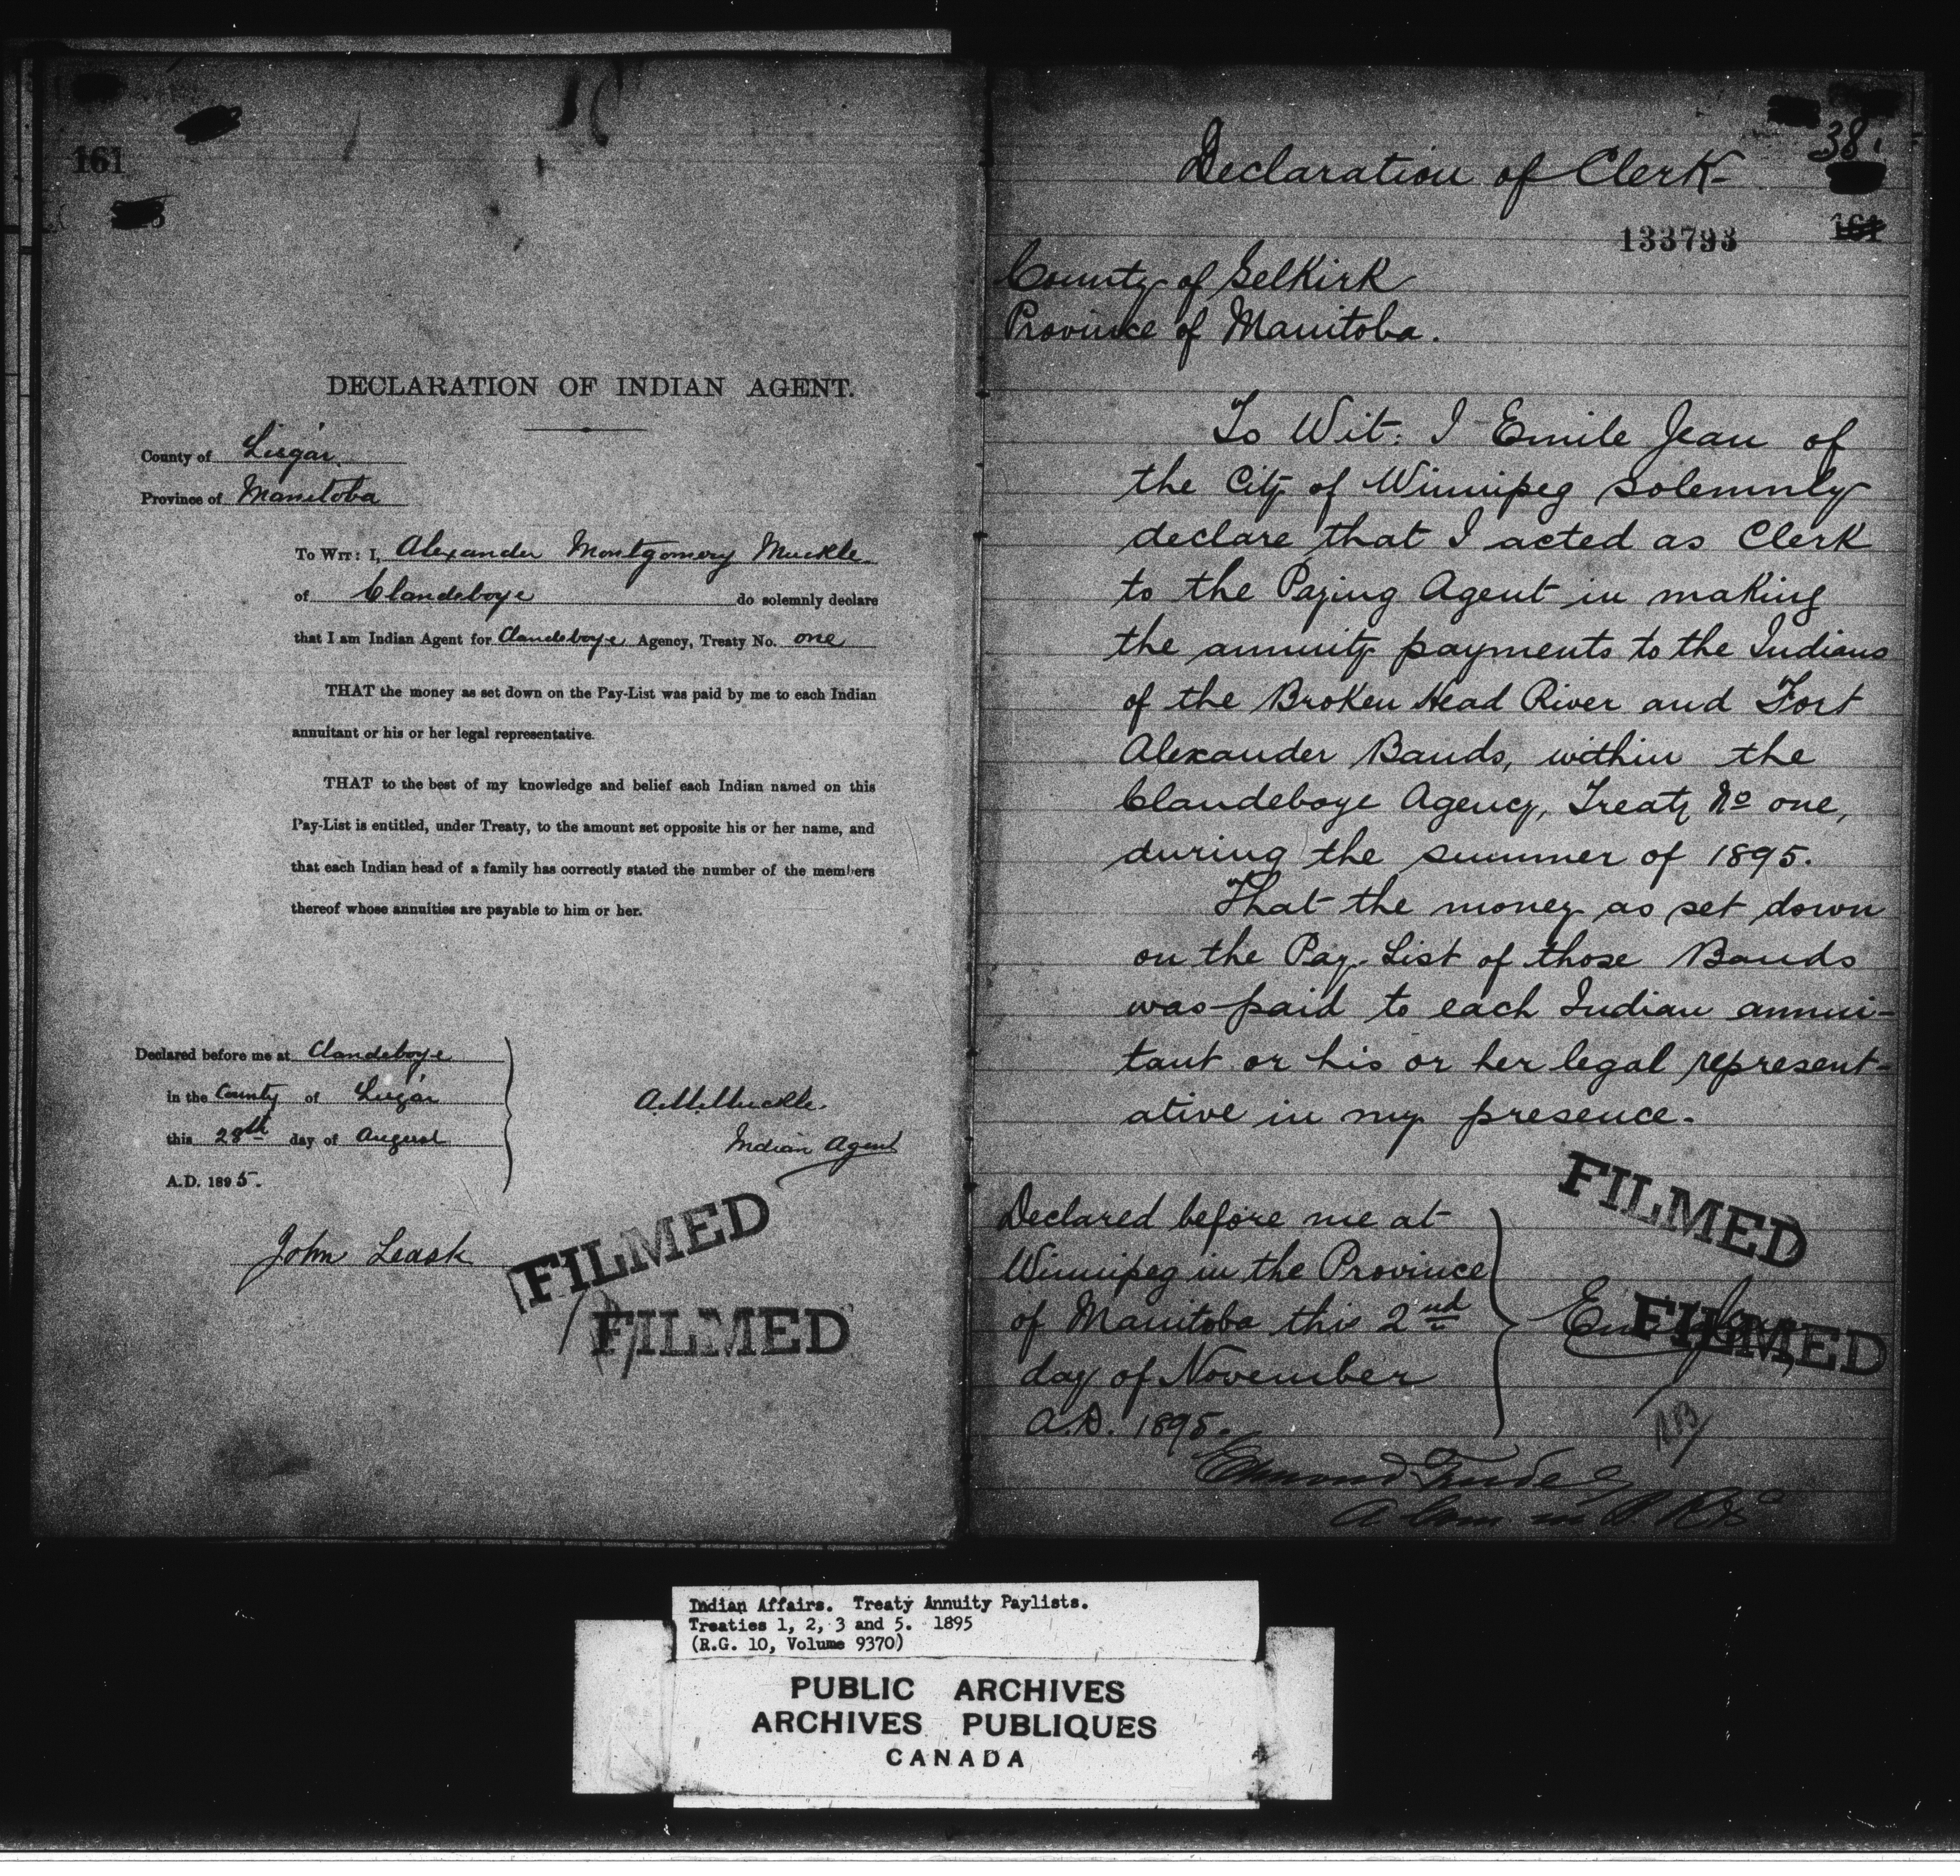 161
DECLARATION OF INDIAN AGENT.
County of Lisgar
Province of Manitoba
To Wit: I, Alexander Montgomery Muckle
of Clandeboye do solemnly declare
that I am Indian Agent for Clandeboye Agency, Treaty No. one
THAT the money as set down on the Pay-List was paid by me to each Indian
annuitant or his or her legal representative.
THAT to the best of my knowledge and belief each Indian named on this
Pay-List is entitled, under Treaty, to the amount set opposite his or her name, and
that each Indian head of a family has correctly stated the number of the members
thereof whose annuities are payable to him or her.
Declared before me at Clandeboye
in the County of Lisgar
this 28th day of August
A.D. 1895.
A.M. Muckle.
Indian Agent
John Leask
FILMED
FILMED
38.
Declaration of Clerk-
133793
161
County of Selkirk
Province of Manitoba.
To Wit: I Emile Jean of
the City of Winnipeg solemnly
declare that I acted as Clerk
to the Paying Agent in making
the annuity payments to the Indians
of the Broken Head River and Fort
Alexander Bands, within the
Clandeboye Agency, Treaty No one,
during the summer of 1895.
That the money as set down
on the Pay-List of those Bands
was paid to each Indian annui-
tant or his or her legal represent-
ative in my presence.
Declared before me at
Winnipeg in the Province
of Manitoba this 2nd
day of November
A.D. 1895.
FILMED
FILMED
Edmond Trudel
A Com in B R &c
Indian Affairs. Treaty Annuity Paylists.
Treaties 1, 2, 3 and 5. 1895
(R.G. 10, Volume 9370)
PUBLIC ARCHIVES
ARCHIVES PUBLIQUES
CANADA